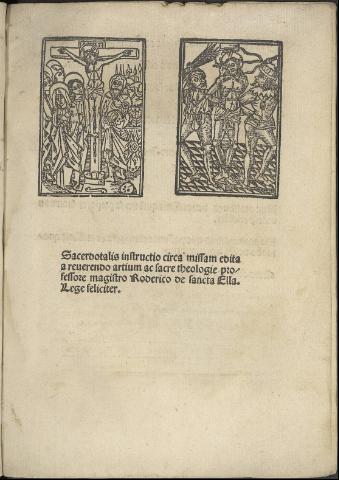 Sacerdotalis instructio circa missam edita
a reverendo artium ac sacre theologie pro⸗
fessore magistro Roderico de sancta Ella.
Lege feliciter.